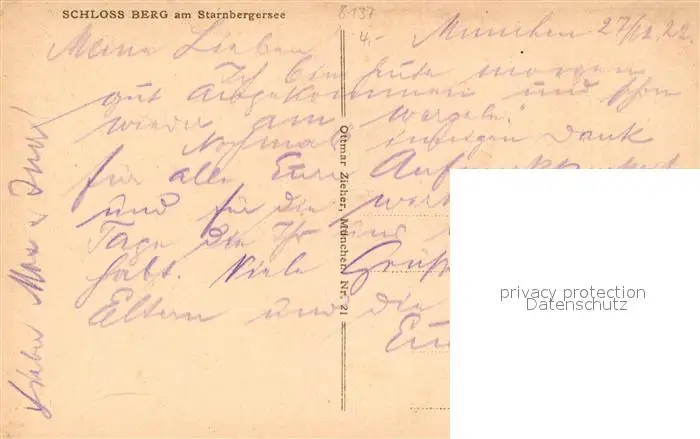 SCHLOSS BERG am Starnbergersee
8197
4.-
München 27/12. 22.
Meine Lieben!
Ich bin heute morgen
gut angekommen und schon
wieder am
Nochmal innigen Dank
für alle Eure
und für die
Tage die Ihr uns
habt. Viele Grüße
Eltern und die
Eure
Lieber Max &
Ottmar Zieher, München Nr. 21
privacy protection
Datenschutz